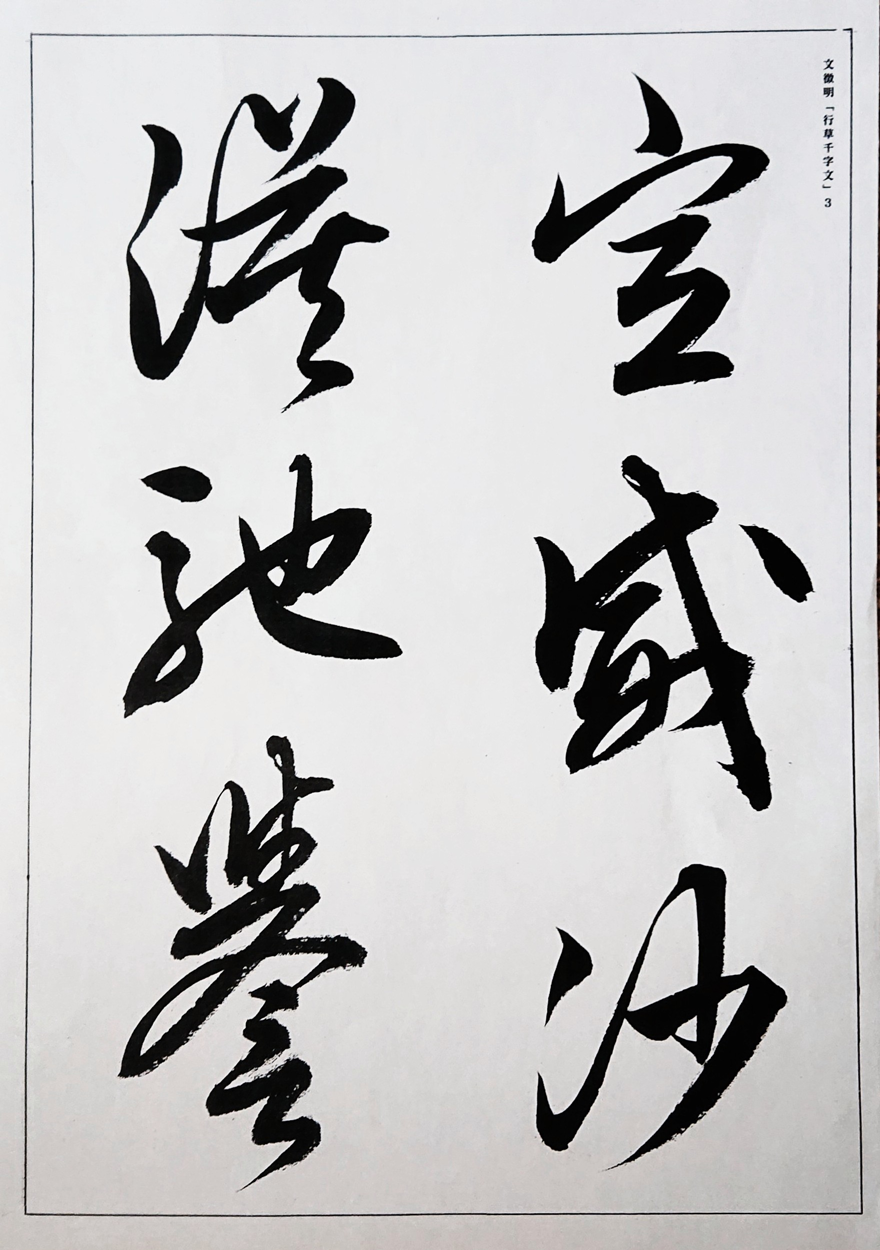 文徴明「行草千字文」3
宣威沙
漠馳譽